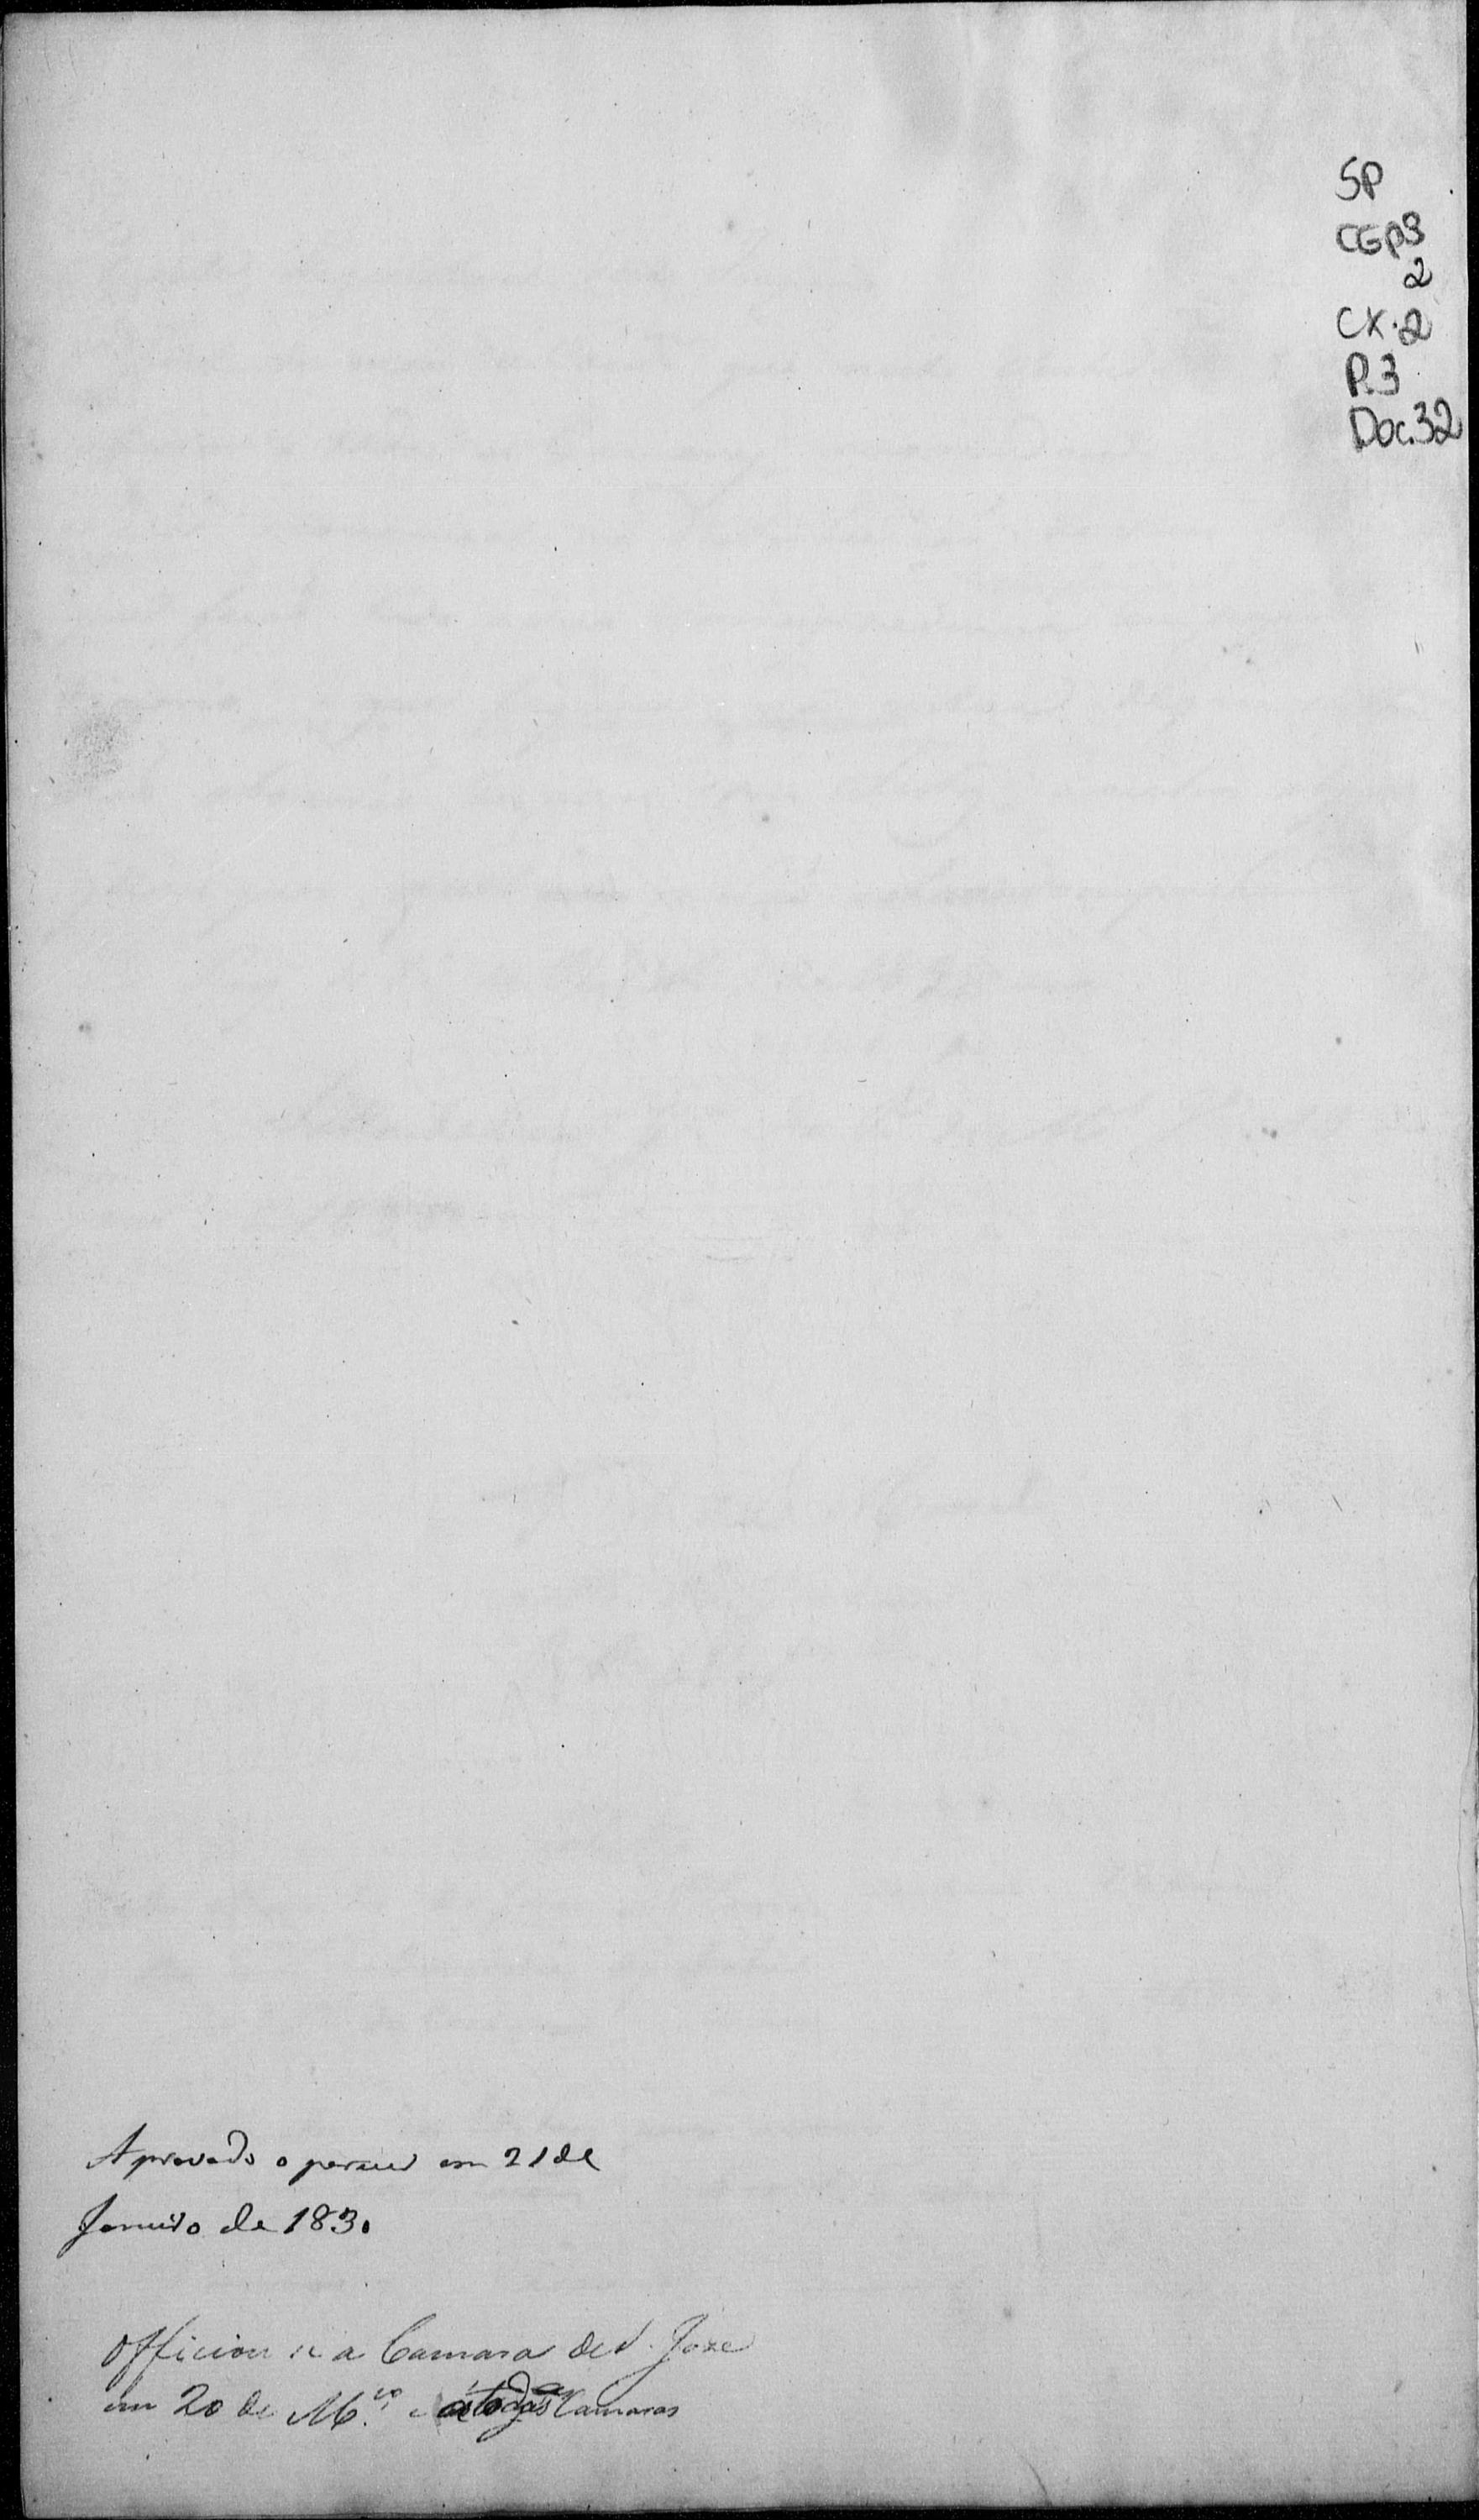 SP
CGP3
2
CX.2
P.3
Doc.32
Aprovado o parecer em 21 de
Janeiro de 1830
Officiou se a Camara de S. Joze
em 20 de M.ço e a todas as Camaras